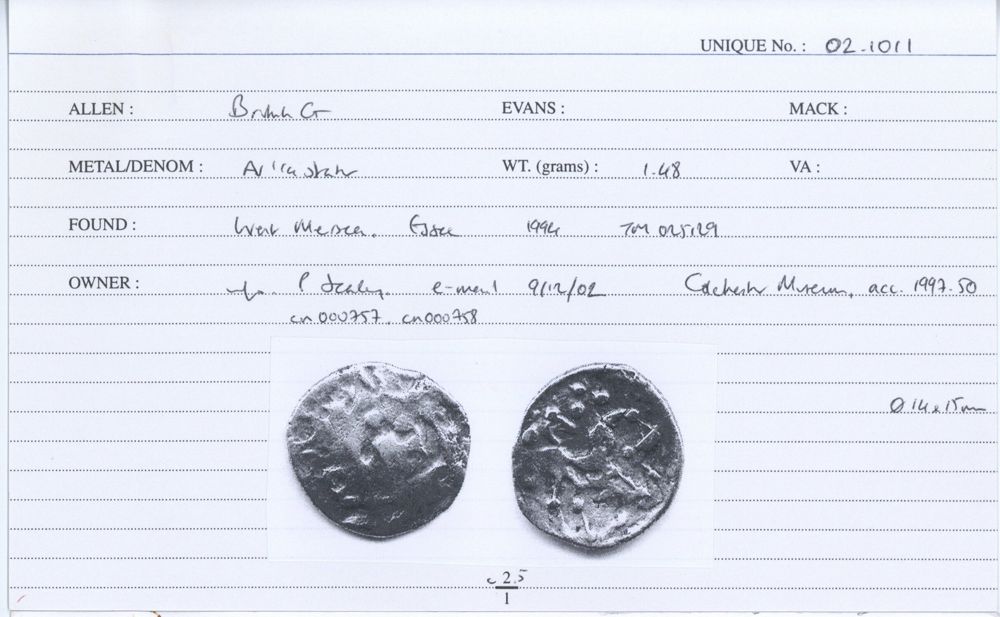 UNIQUE No. : 02-1011
ALLEN : British G EVANS : MACK :
METAL/DENOM : AV 1/4 stater WT. (grams) : 1.48 VA :
FOUND : West Mersea, Essex 1994 TM 025129
OWNER : info. P Sealey, e-mail 9/12/02 Colchester Museum, acc. 1997.50
cn000757, cn000758
Ø 14 x 15mm
c 2.5
1